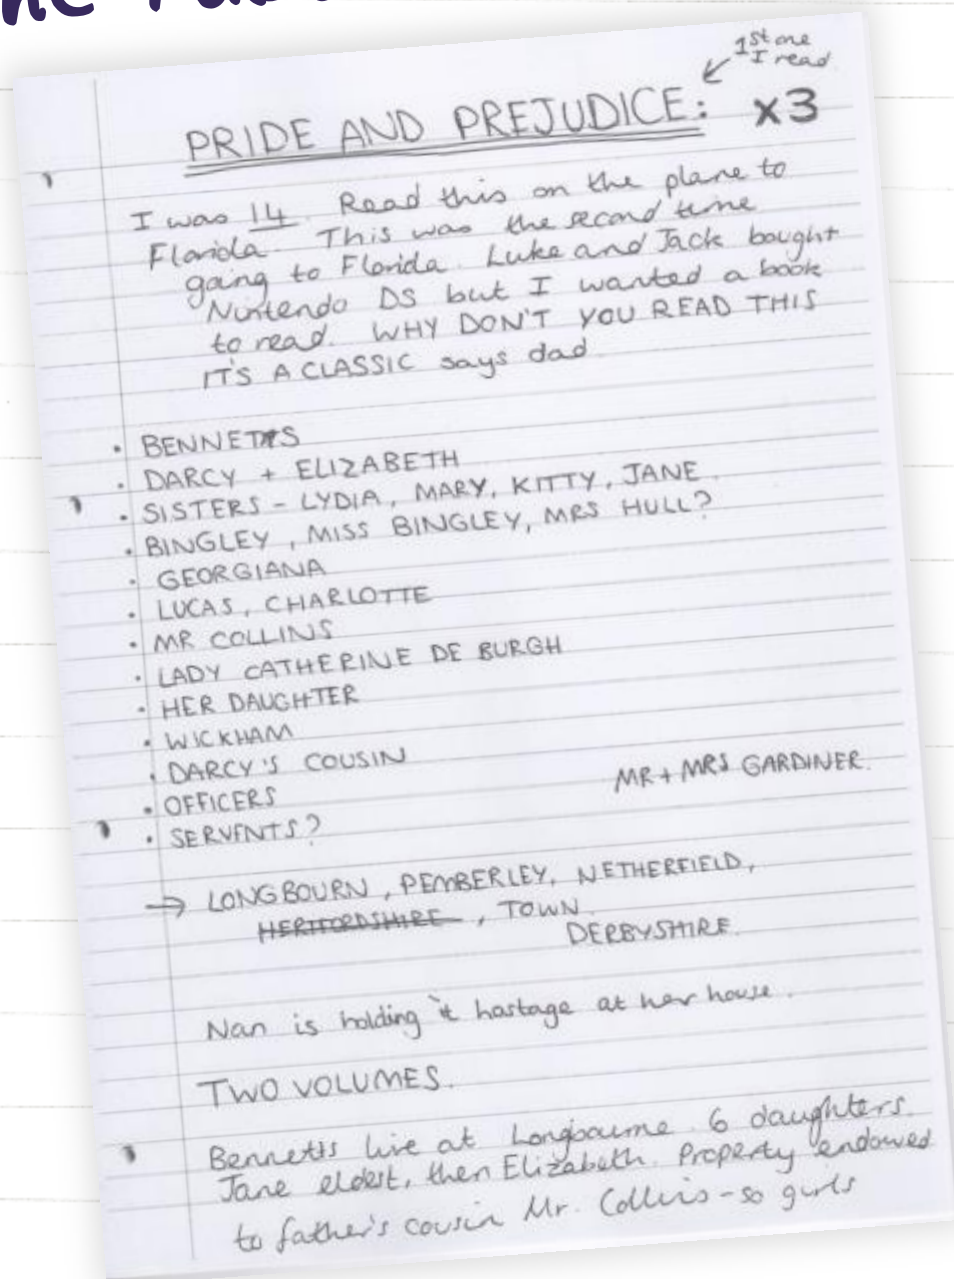 1st one
I read
PRIDE AND PREJUDICE: x3
I was 14. Read this on the plane to
Florida. This was the second time
going to Florida. Luke and Jack bought
Nintendo DS but I wanted a book
to read. WHY DON'T YOU READ THIS
IT'S A CLASSIC says dad
• BENNETTS
• DARCY + ELIZABETH
• SISTERS - LYDIA, MARY, KITTY, JANE.
• BINGLEY, MISS BINGLEY, MRS HULL?
• GEORGIANA
• LUCAS, CHARLOTTE
• MR COLLINS
• LADY CATHERINE DE BURGH
• HER DAUGHTER
• WICKHAM
• DARCY'S COUSIN
MR + MRS GARDINER.
• OFFICERS
• SERVENTS?
→ LONGBOURN, PEMBERLEY, NETHERFIELD,
HERTFORDSHIRE, TOWN.
DERBYSHIRE.
Nan is holding it hostage at her house.
TWO VOLUMES.
Bennetts live at Longbourne. 6 daughters.
Jane eldest, then Elizabeth. Property endowed
to father's cousin Mr. Collins - so girls